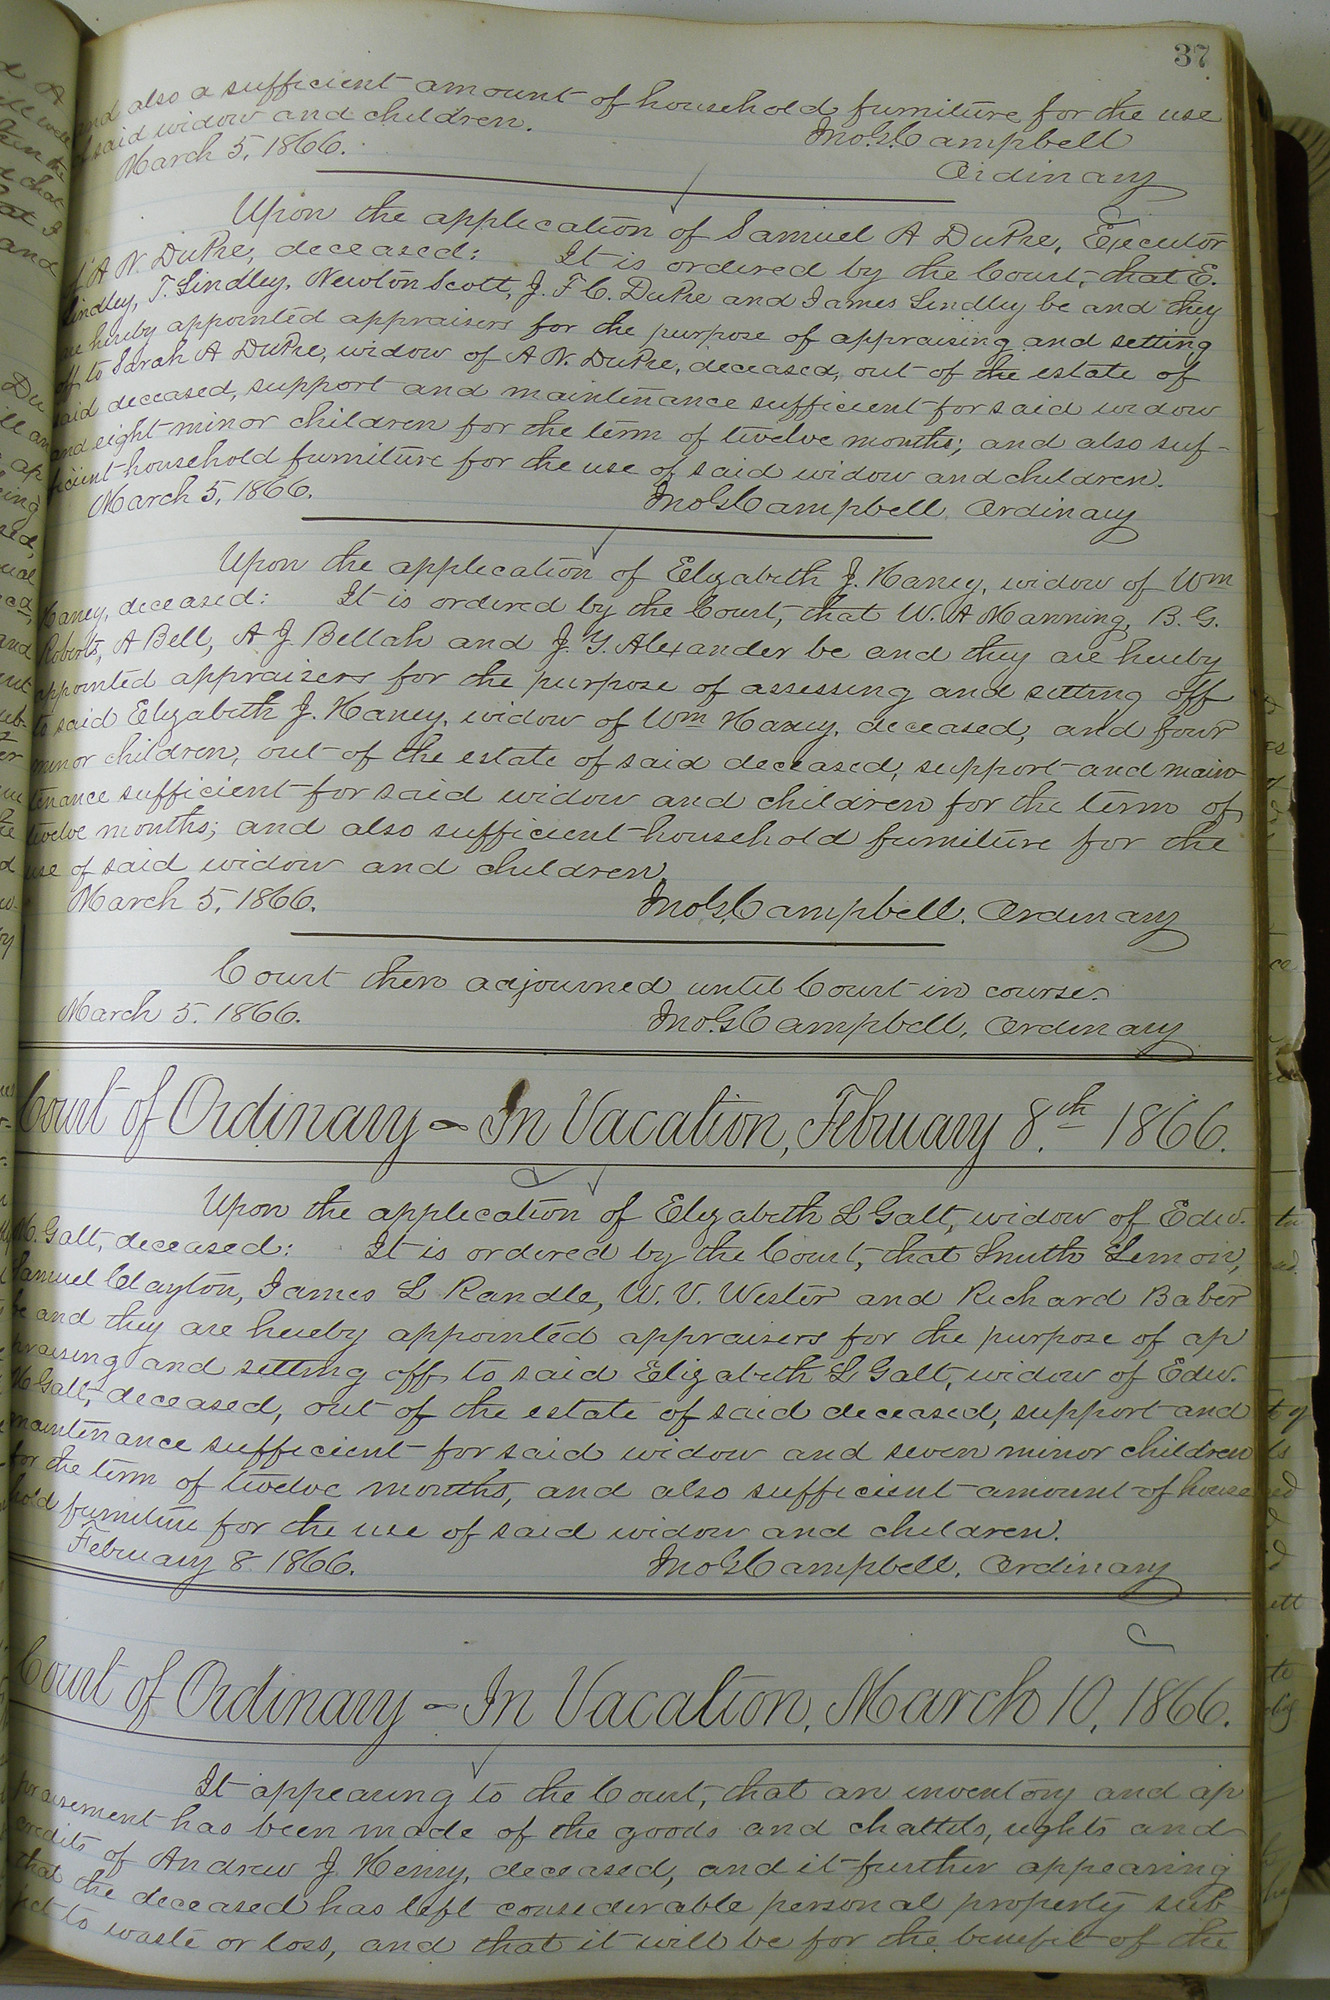 37
and also a sufficient amount of household furniture for the use
of said widow and children.
March 5, 1866. Jno G. Campbell
Ordinary
Upon the application of Samuel A DuPre, Executor
A N. DuPre, deceased: It is ordered by the Court, that E.
Lindley, T. Lindley, Newton Scott, J. F C. DuPre and James Lindley be and they
are hereby appointed appraisers for the purpose of appraising and setting
off to Sarah A DuPre, widow of A N. DuPre, deceased, out of the estate of
said deceased, support and maintenance sufficient for said widow
and eight minor children for the term of twelve months; and also suf-
ficient household furniture for the use of said widow and children.
March 5, 1866. Jno G. Campbell, Ordinary
Upon the application of Elizabeth J. Haney, widow of Wm
Haney, deceased: It is ordered by the Court, that W. A Manning, B. G.
Roberts, A Bell, A J Bellah and J. Y. Alexander be and they are hereby
appointed appraisers for the purpose of assessing and setting off
to said Elizabeth J. Haney, widow of Wm Haney, deceased, and four
minor children, out of the estate of said deceased, support and main-
tenance sufficient for said widow and children for the term of
twelve months; and also sufficient household furniture for the
use of said widow and children.
March 5, 1866. Jno G. Campbell, Ordinary
Court then adjourned until Court in course.
March 5. 1866. Jno G. Campbell, Ordinary
Court of Ordinary - In Vacation, February 8th 1866.
Upon the application of Elizabeth L Galt, widow of Edw.
M. Galt, deceased: It is ordered by the Court, that Smith Lemon,
Samuel Clayton, James L Randle, W. V. Wester and Richard Baber
be and they are hereby appointed appraisers for the purpose of ap
praising and setting off to said Elizabeth L Galt, widow of Edw.
M Galt, deceased, out of the estate of said deceased, support and
maintenance sufficient for said widow and seven minor children
for the term of twelve months, and also sufficient amount of house
hold furniture for the use of said widow and children.
February 8 1866. Jno G. Campbell, Ordinary
Court of Ordinary - In Vacation, March 10, 1866.
It appearing to the Court, that an inventory and ap
praisement has been made of the goods and chattels, rights and
credits of Andrew J. Henry, deceased, and it further appearing
that the deceased has left considerable personal property sub-
ject to waste or loss, and that it will be for the benefit of the